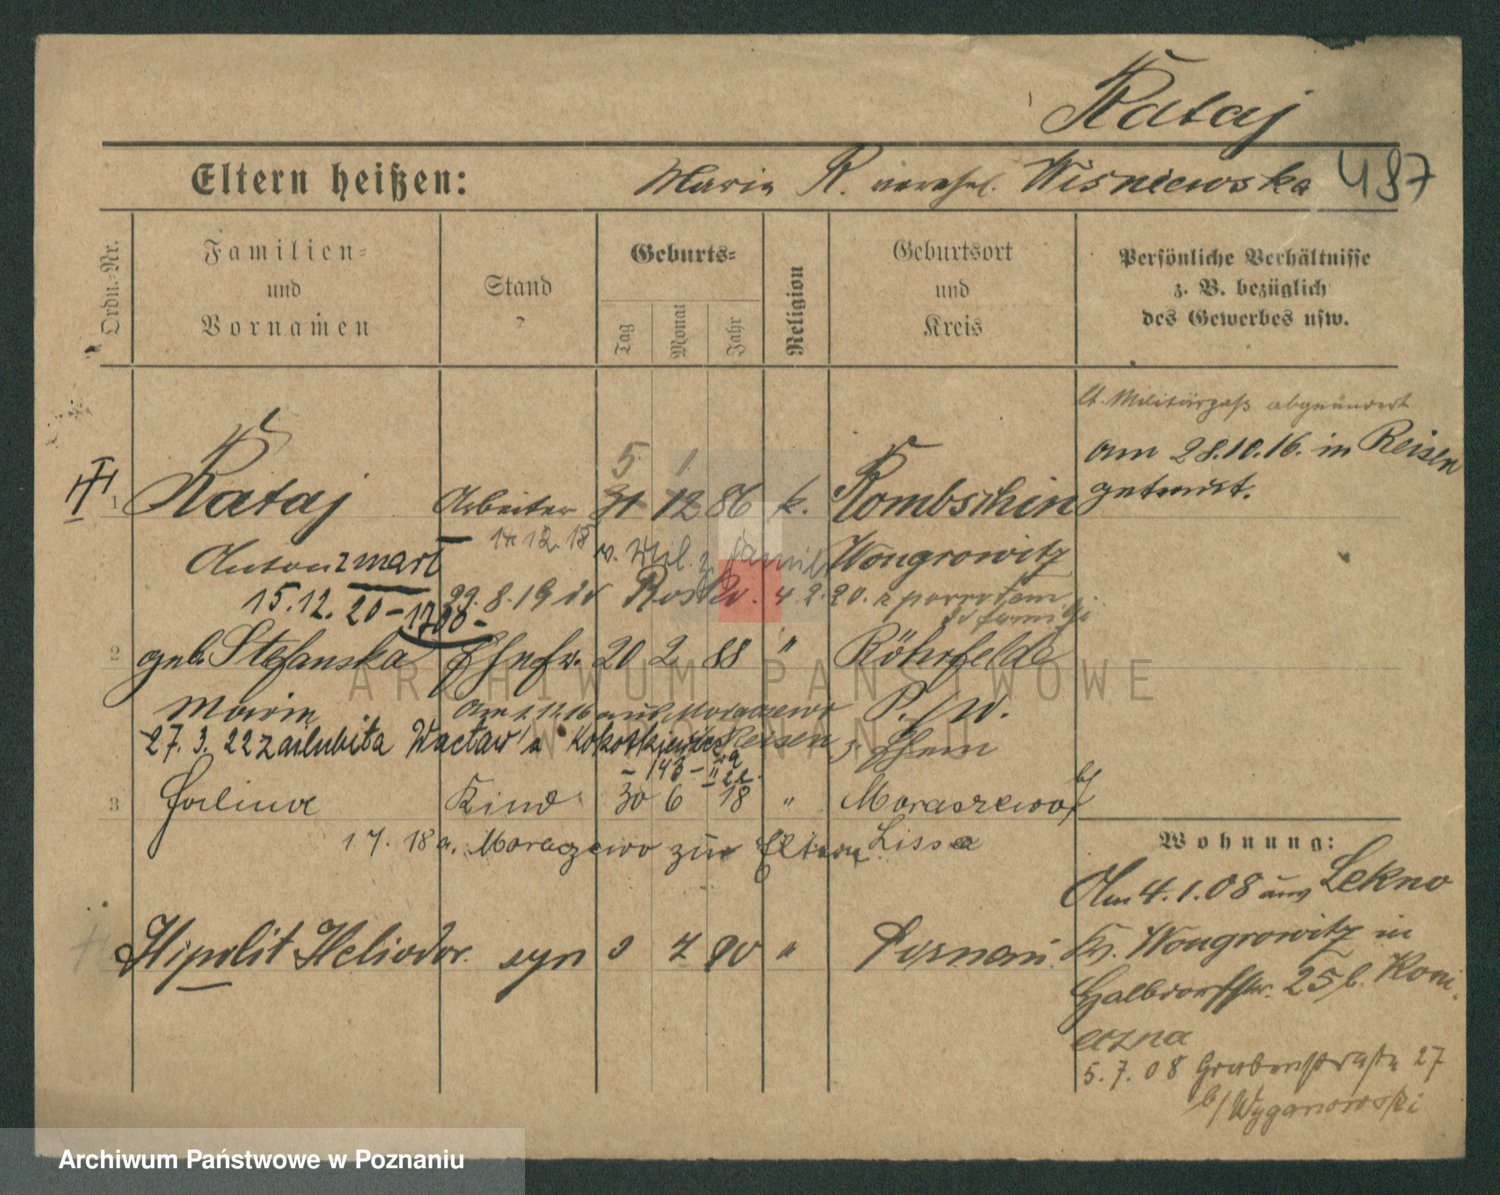 Rataj
Eltern heißen: Maria R. verehel. Wisniewska 487
Ordn.-Nr.
Familien- und Vornamen
Stand
Geburts-
Tag
Monat
Jahr
Religion
Geburtsort und Kreis
Persönliche Verhältnisse z. B. bezüglich des Gewerbes usw.
lt. Militärpaß abgeändert
am 28.10.16. in Reisen
getraut.
5 1
1 Rataj Arbeiter 31 12 86 k. Rombschin
Anton zmarł Wongrowitz
15.12.20 - 1708 -
29.8.19 in 4.2.20. z powrotem
2 geb. Stefanska Ehefr. 20 2 88 " Röhrfelde
Maria am 1.11.16 aus Moraczewo P. / W.
27.3.22 zaślubiła Wacław'a Kokotkiewicz Reisen z. Ehem
- 143 - 22.
3 Haline Kind 30 6 18 " Moraszewo
1 7. 18 a. Moraczewo zur Eltern Lissa
Wohnung:
Am 4.1.08 aus Lekno
Kr. Wongrowitz in
Halbdorfstr. 25 b. Koni-
eczna
5.7.08 Grabenstraße 27
b/ Wyganowski
Hipolit Heliodor. syn 9 7 90 " Poznań.
ARCHIWUM PAŃSTWOWE
W POZNANIU
Archiwum Państwowe w Poznaniu